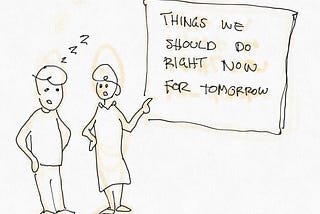 z z z
THINGS WE
SHOULD DO
RIGHT NOW
FOR TOMORROW